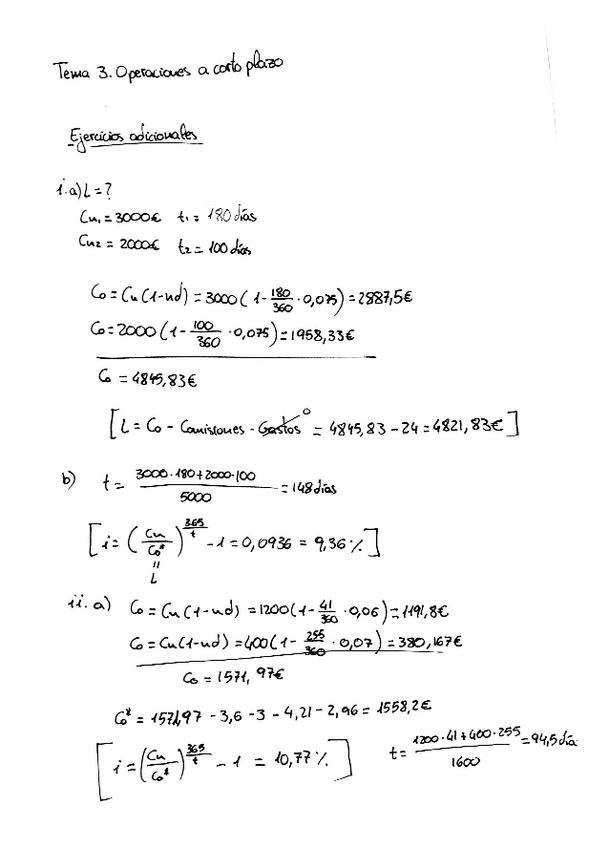 Tema 3. Operaciones a corto plazo
Ejercicios adicionales
i.a) L = ?
Cn₁ = 3000€ t₁ = 180 días
Cn₂ = 2000€ t₂ = 100 días
C₀ = Cn(1-nd) = 3000(1 - 180/360 · 0,075) = 2887,5€
C₀ = 2000(1 - 100/360 · 0,075) = 1958,33€
C₀ = 4845,83€
[L = C₀ - Comisiones - Gastos⁰ = 4845,83 - 24 = 4821,83€]
b) t = (3000·180 + 2000·100)/5000 = 148 días
[i = (Cn/C₀*)^(365/t) - 1 = 0,0936 = 9,36%]
=
L
ii. a) C₀ = Cn(1-nd) = 1200(1 - 41/360 · 0,06) = 1191,8€
C₀ = Cn(1-nd) = 400(1 - 255/360 · 0,07) = 380,167€
C₀ = 1571,97€
C₀* = 1571,97 - 3,6 - 3 - 4,21 - 2,96 = 1558,2€
[i = (Cn/C₀*)^(365/t) - 1 = 10,77%] t = (1200·41 + 400·255)/1600 = 94,5 día